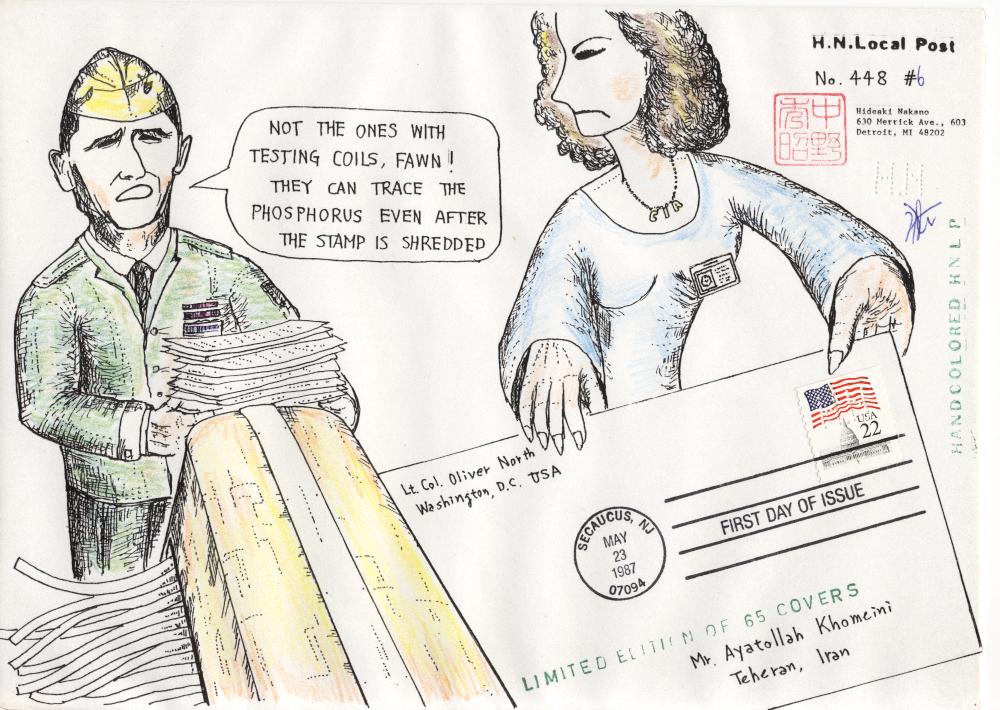 H.N.Local Post
No. 448 #6
中野
秀昭
Hideaki Nakano
630 Merrick Ave., 603
Detroit, MI 48202
HN
NOT THE ONES WITH
TESTING COILS, FAWN!
THEY CAN TRACE THE
PHOSPHORUS EVEN AFTER
THE STAMP IS SHREDDED
HANDCOLORED HNLP
USA
22
Lt. Col. Oliver North
Washington, D.C. USA
SECAUCUS, NJ
MAY
23
1987
07094
FIRST DAY OF ISSUE
LIMITED EDITION OF 65 COVERS
Mr. Ayatollah Khomeini
Teheran, Iran